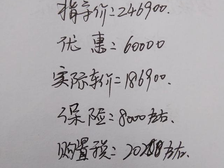 指导价=246900.
优惠=60000
实际车价=186900.
保险=8000左右.
购置税=20左右.